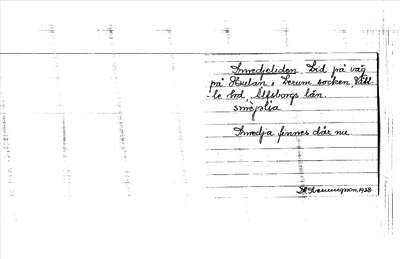 Smedjeliden, Lid på väg
på Hulan i Lerum socken, Vätt-
le hd, Älfsborgs län
Smedja finnes där nu
1928